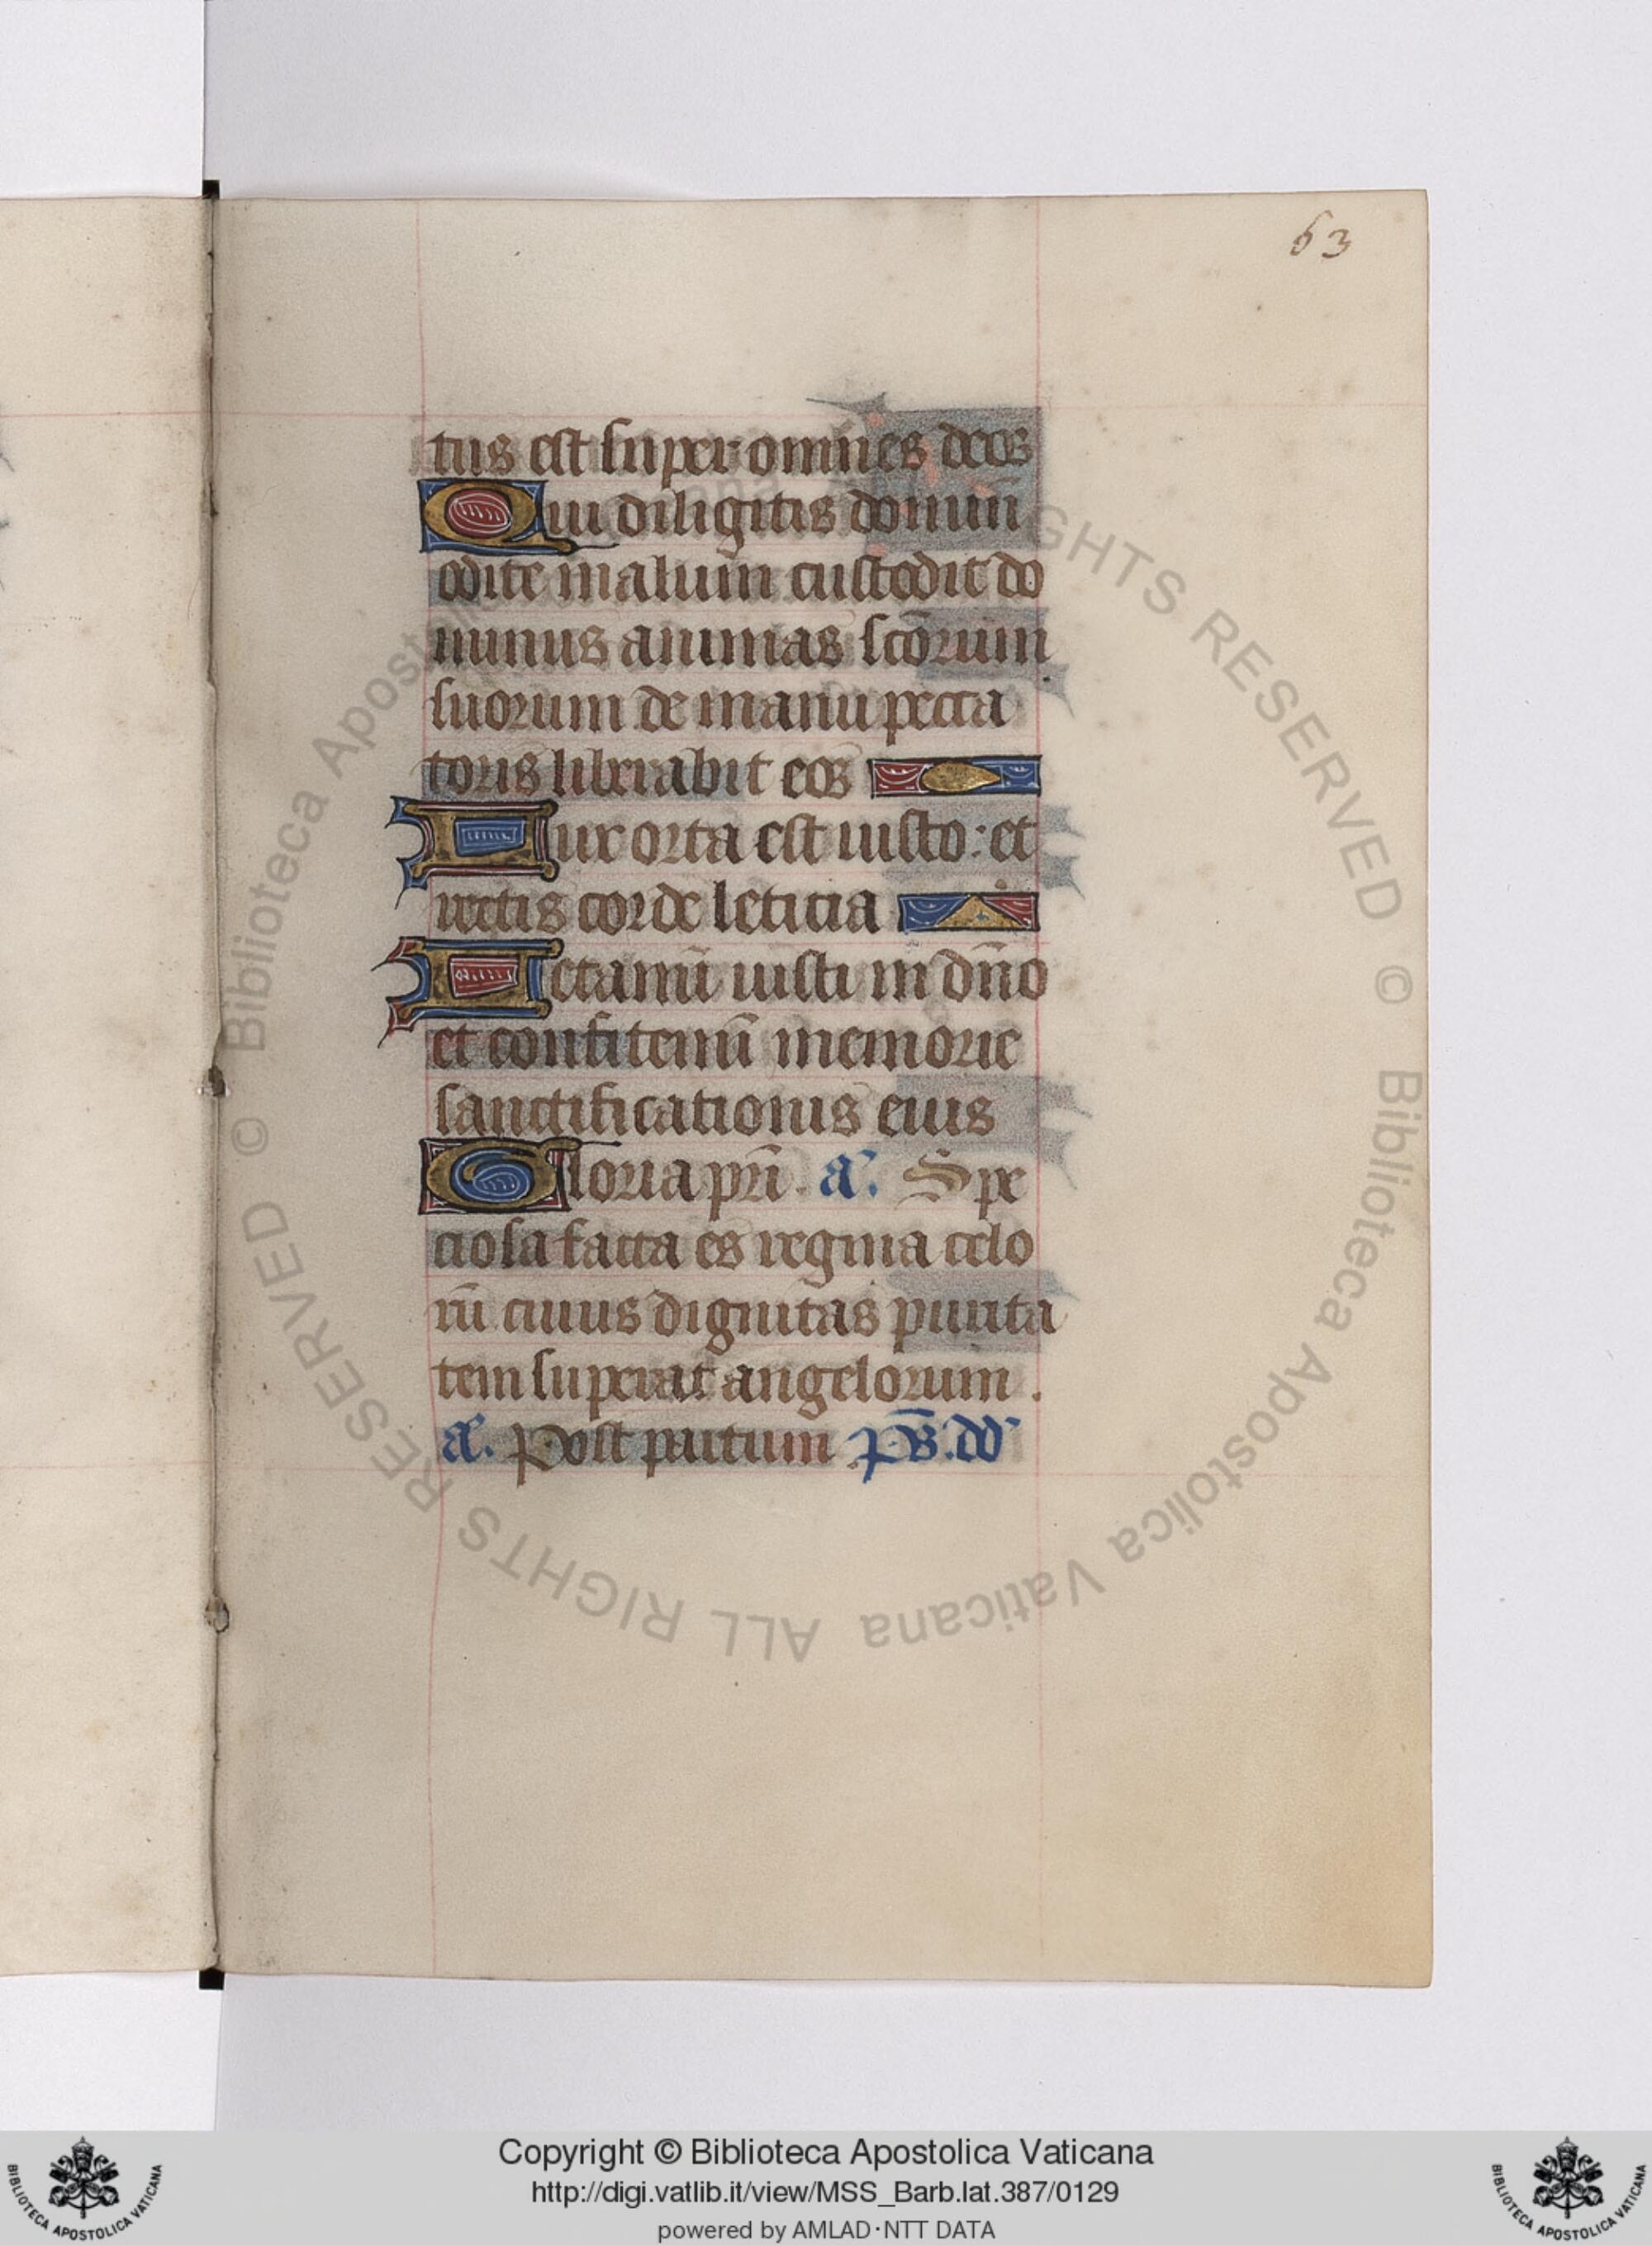 63
tus est super omnes deos
Qui diligitis dominū
odite malum custodit do
minus animas scōrum
suorum de manu pecca
toris liberabit eos
Lux orta est iusto: et
rectis corde leticia
Letamī iusti in dn̄o
et confitemī memorie
sanctificationis eius
Gloria pr̄i. a͛. Spe
ciosa facta es regina celo
rū cuius dignitas purita
tem superat angelorum.
a͛. Post partum p̄s. dd͛
© Biblioteca Apostolica Vaticana ALL RIGHTS RESERVED © Biblioteca Apostolica Vaticana ALL RIGHTS RESERVED
Copyright © Biblioteca Apostolica Vaticana
http://digi.vatlib.it/view/MSS_Barb.lat.387/0129
powered by AMLAD·NTT DATA
BIBLIOTECA APOSTOLICA VATICANA
BIBLIOTECA APOSTOLICA VATICANA